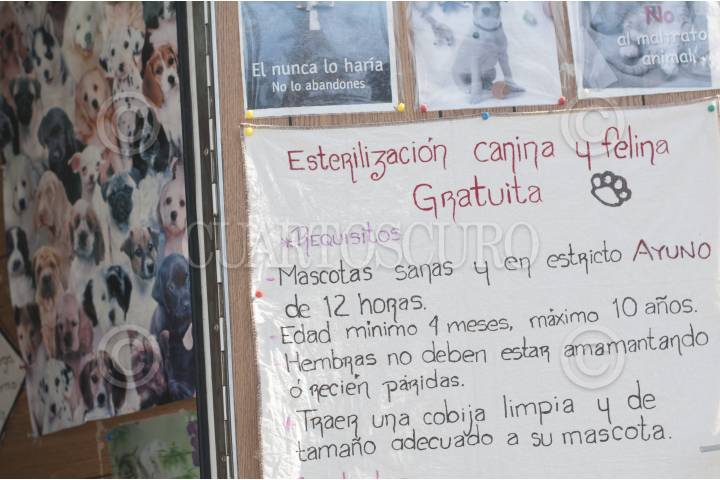 El nunca lo haría
No lo abandones
No
al maltrato
animal
Esterilización canina y felina
Gratuita
*Requisitos
- Mascotas sanas y en estricto AYUNO
de 12 horas.
- Edad mínimo 4 meses, máximo 10 años.
Hembras no deben estar amamantando
ó recién páridas.
- Traer una cobija limpia y de
tamaño adecuado a su mascota.
CUARTOSCURO